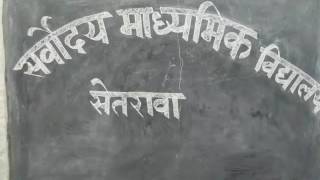 सर्वोदय माध्यमिक विद्यालय
सेतरावा